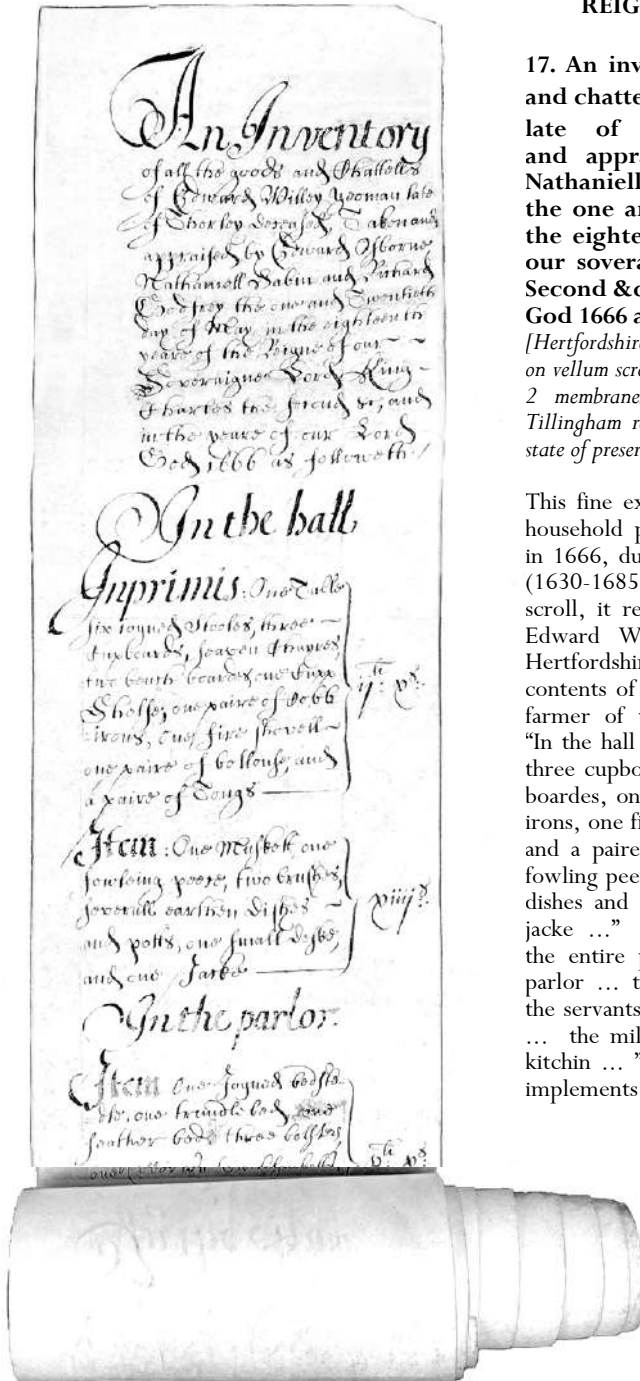 An Inventory
of all the goods and Chattells
of Edward Willey yeoman late
of Thorley deceased, Taken and
appraised by Edward Osborne
Nathaniell Babur and Richard
Godfrey the one and Twentieth
day of May in the eighteenth
yeare of the Reigne of our
Soveraigne Lord King
Charles the second &c, and
in the yeare of our Lord
God 1666 as followeth /
In the hall
Inprimis: One Table
six ioyned Stooles, three
Cupboards, seaven Chayres
two bench boardes, one Cupp
Shelfe, one paire of Cobb
irons, one fire shovell
one paire of bellowse, and
a paire of Tongs
ij li xs.
Item: One Muskett, one
fowleing peece, two brushes,
severall earthen dishes
and potts, one small deske,
and one Jacke
xiiij s.
In the parlor.
Item One Joyned bedste
dle, one trundle bed, one
feather bed, three bolsters,
v li xs.
REIG
17. An inv
and chatte
late of
and appra
Nathaniell
the one an
the eighte
our sovera
Second &c
God 1666 a
[Hertfordshire
on vellum scro
2 membrane
Tillingham r
state of preser
This fine ex
household p
in 1666, du
(1630-1685
scroll, it re
Edward W
Hertfordshir
contents of
farmer of
“In the hall
three cupbo
boardes, on
irons, one fi
and a paire
fowling pee
dishes and
jacke …”
the entire p
parlor … t
the servants
… the mil
kitchin … ”
implements